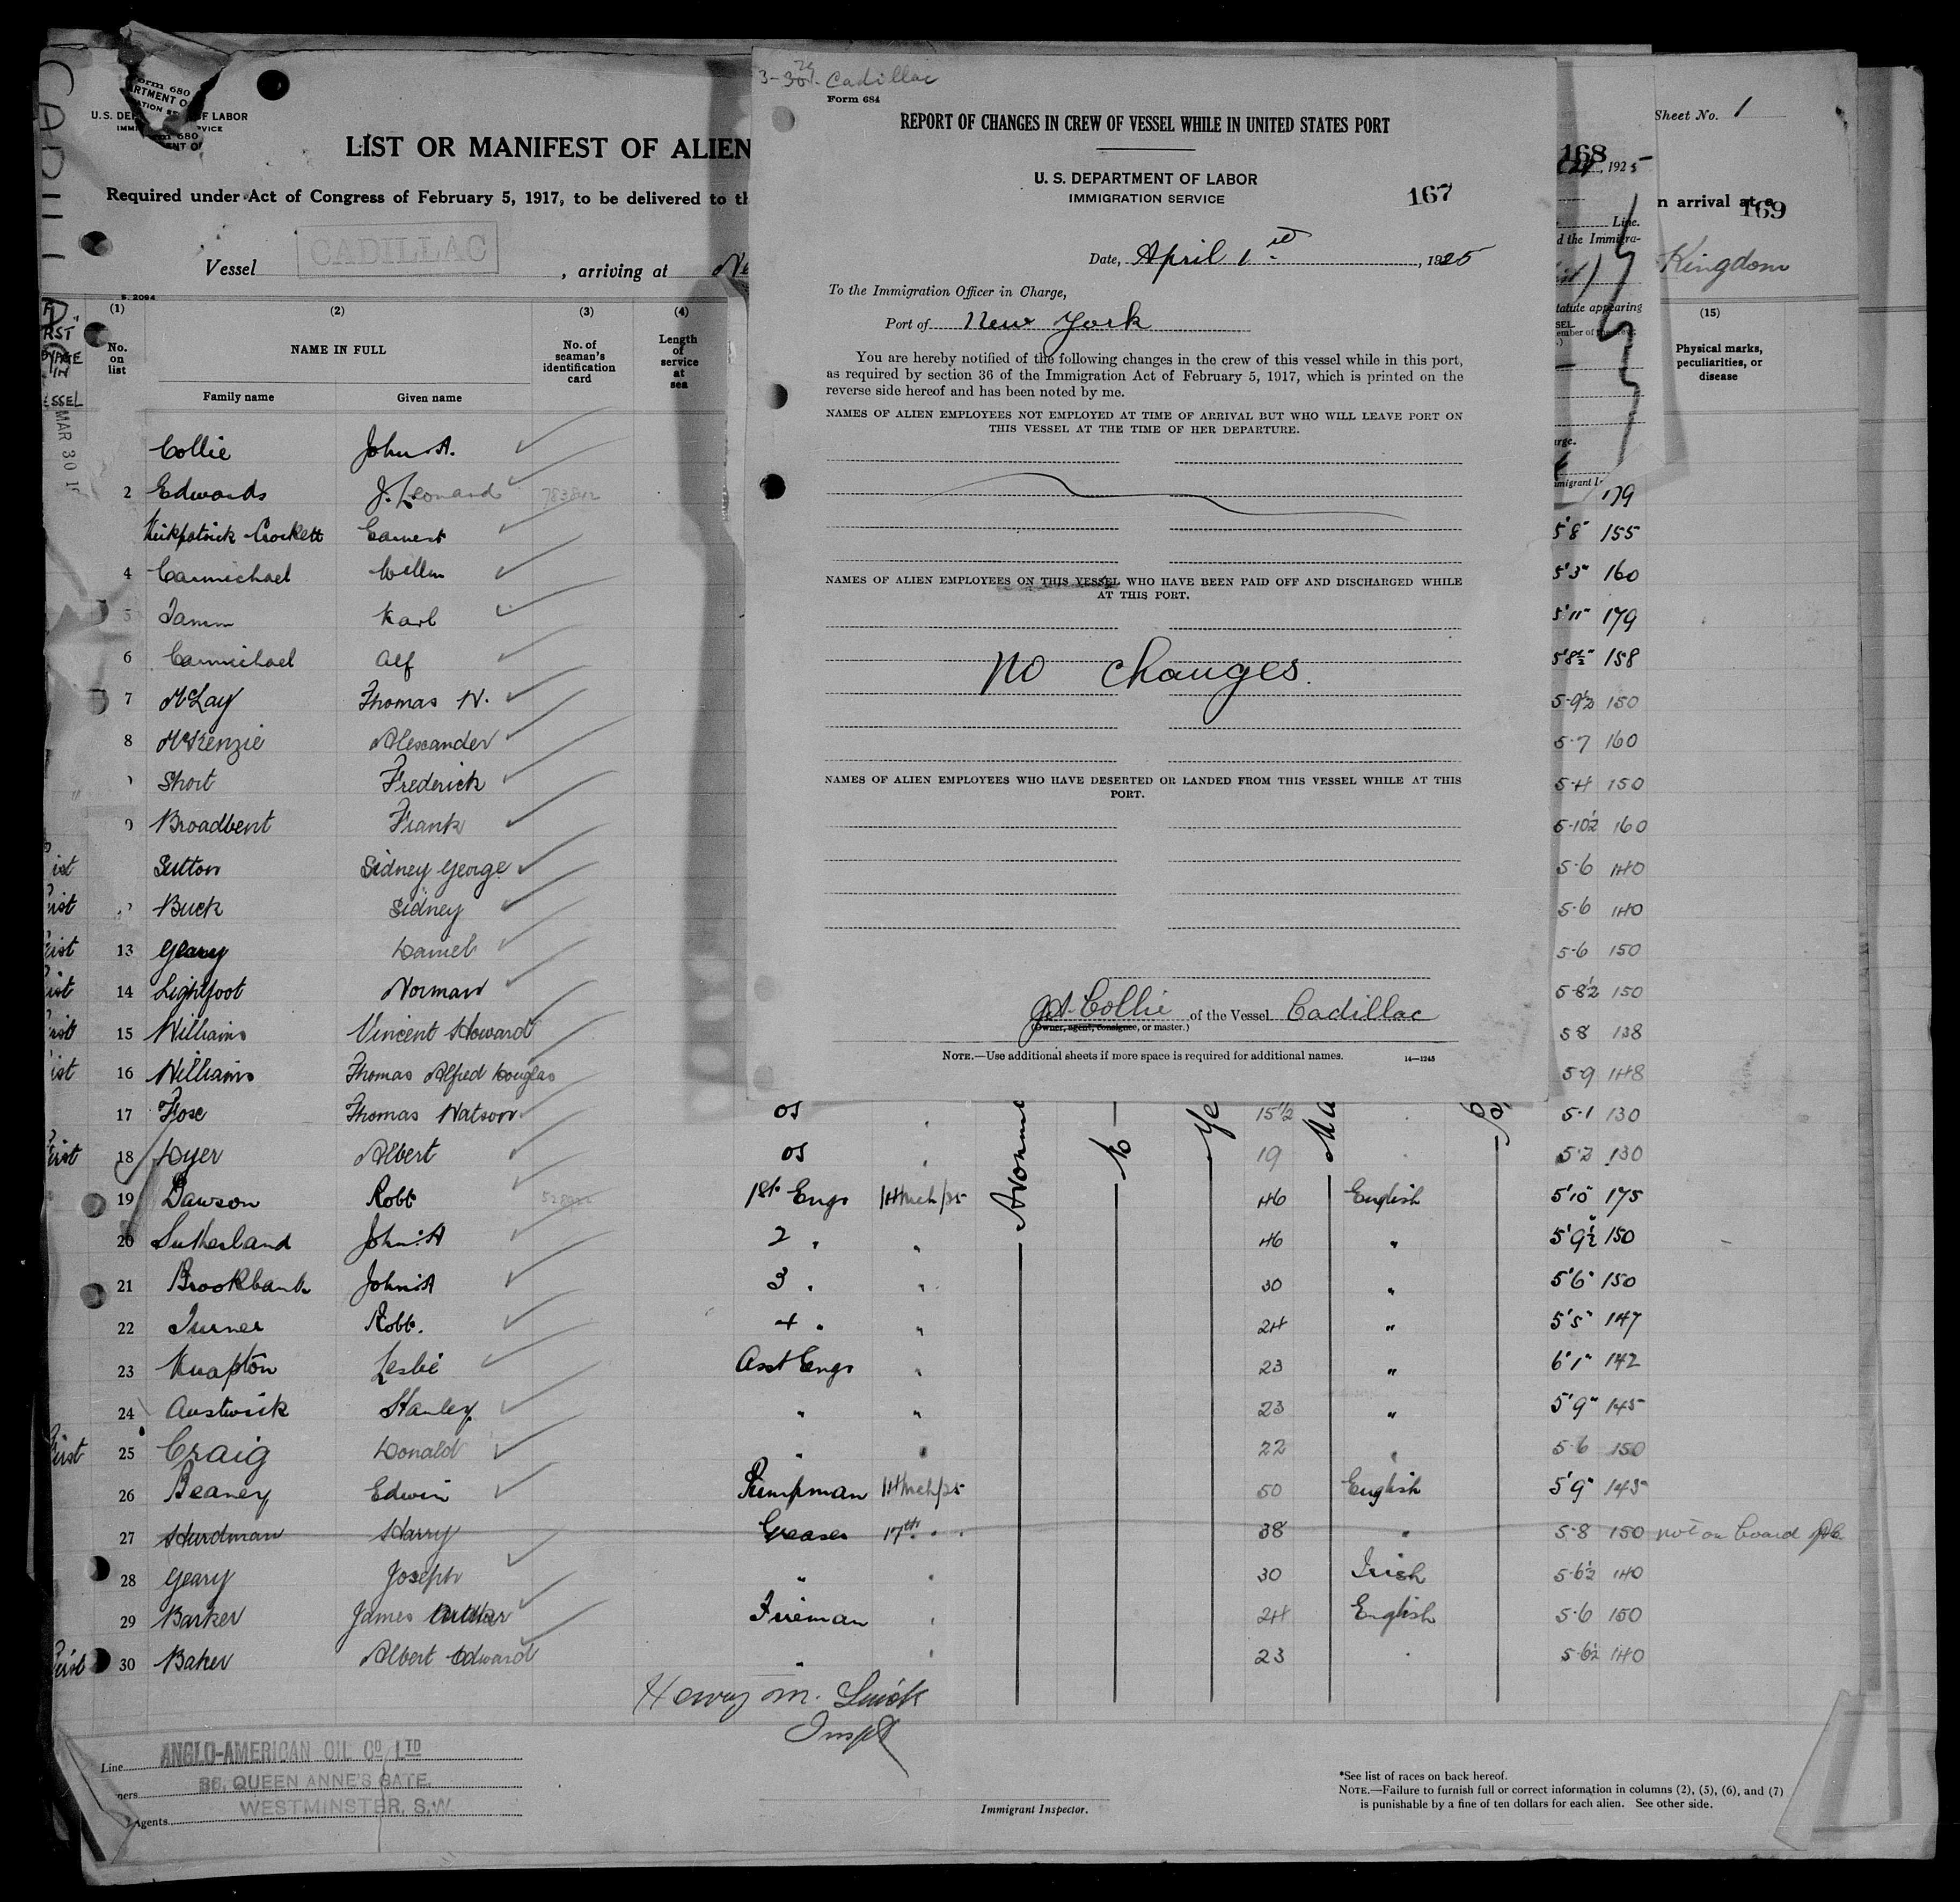 3-30- Cadillac
Form 684
REPORT OF CHANGES IN CREW OF VESSEL WHILE IN UNITED STATES PORT
U. S. DEPARTMENT OF LABOR
IMMIGRATION SERVICE
167
Date, April 1st, 1925
To the Immigration Officer in Charge,
Port of New York
You are hereby notified of the following changes in the crew of this vessel while in this port,
as required by section 36 of the Immigration Act of February 5, 1917, which is printed on the
reverse side hereof and has been noted by me.
NAMES OF ALIEN EMPLOYEES NOT EMPLOYED AT TIME OF ARRIVAL BUT WHO WILL LEAVE PORT ON
THIS VESSEL AT THE TIME OF HER DEPARTURE.
NAMES OF ALIEN EMPLOYEES ON THIS VESSEL WHO HAVE BEEN PAID OFF AND DISCHARGED WHILE
AT THIS PORT.
No changes.
NAMES OF ALIEN EMPLOYEES WHO HAVE DESERTED OR LANDED FROM THIS VESSEL WHILE AT THIS
PORT.
J.A. Collie of the Vessel Cadillac
(Owner, agent, consignee, or master.)
NOTE.—Use additional sheets if more space is required for additional names. 14—1245
CADILL
Form 680
U.S. DEP OF LABOR
LIST OR MANIFEST OF ALIEN
Required under Act of Congress of February 5, 1917, to be delivered to th
Vessel CADILLAC, arriving at Ne
168
, 1925
Line.
d the Immigra-
tatute appearing
Sheet No. 1
n arrival at a
169
Kingdom
(1) (2) (3) (4) (15)
No. on list
NAME IN FULL
Family name Given name
No. of seaman's identification card
Length of service at sea
Physical marks, peculiarities, or disease
MAR 30 1
Collie John A. 179
2 Edwards J. Leonard 5'8" 155
Kirkpatrick Crockett Earnest 5'3" 160
4 Carmichael Willm 5'11" 179
5 Tamm Karl 5'8½" 158
6 Carmichael Alf
7 McLay Thomas N. 5-9½ 150
8 McKenzie Alexander 5-7 160
Short Frederick 5-4 150
Broadbent Frank 5-10½ 160
Sutton Sidney George 5-6 140
Buck Sidney 5-6 140
13 Geary Daniel 5-6 150
14 Lightfoot Norman 5-8½ 150
15 Williams Vincent Howard 5 8 138
16 Williams Thomas Alfred Douglas 5-9 148
17 Fose Thomas Watson OS 15½ 5-1 130
First 18 Dyer Albert OS 19 5-2 130
19 Dawson Robt 1st Engr 14 Mch/25 46 English 5'10" 175
20 Sutherland John A 2 " " 46 " 5'9½" 150
21 Brookbank John A 3 " " 30 " 5'6" 150
22 Turner Robt. 4 " " 24 " 5'5" 147
23 Knapton Leslie Asst Engr " 23 " 6'1" 142
24 Austwick Stanley " " 23 " 5'9" 145
First 25 Craig Donald " " 22 " 5-6 150
26 Beaney Edwin Pumpman 14 Mch/25 50 English 5'9" 145
27 Hurdman Harry Greaser 17th " " 38 " 5-8 150 not on board
28 Geary Joseph " " 30 Irish 5-6½ 140
29 Barker James Arthur Fireman " 24 English 5-6 150
First 30 Baker Albert Edward " " 23 " 5-6½ 140
Inspt
Line ANGLO-AMERICAN OIL CO LTD
Owners 36, QUEEN ANNE'S GATE,
Agents WESTMINSTER, S.W.
Immigrant Inspector.
*See list of races on back hereof.
NOTE.—Failure to furnish full or correct information in columns (2), (5), (6), and (7)
is punishable by a fine of ten dollars for each alien. See other side.